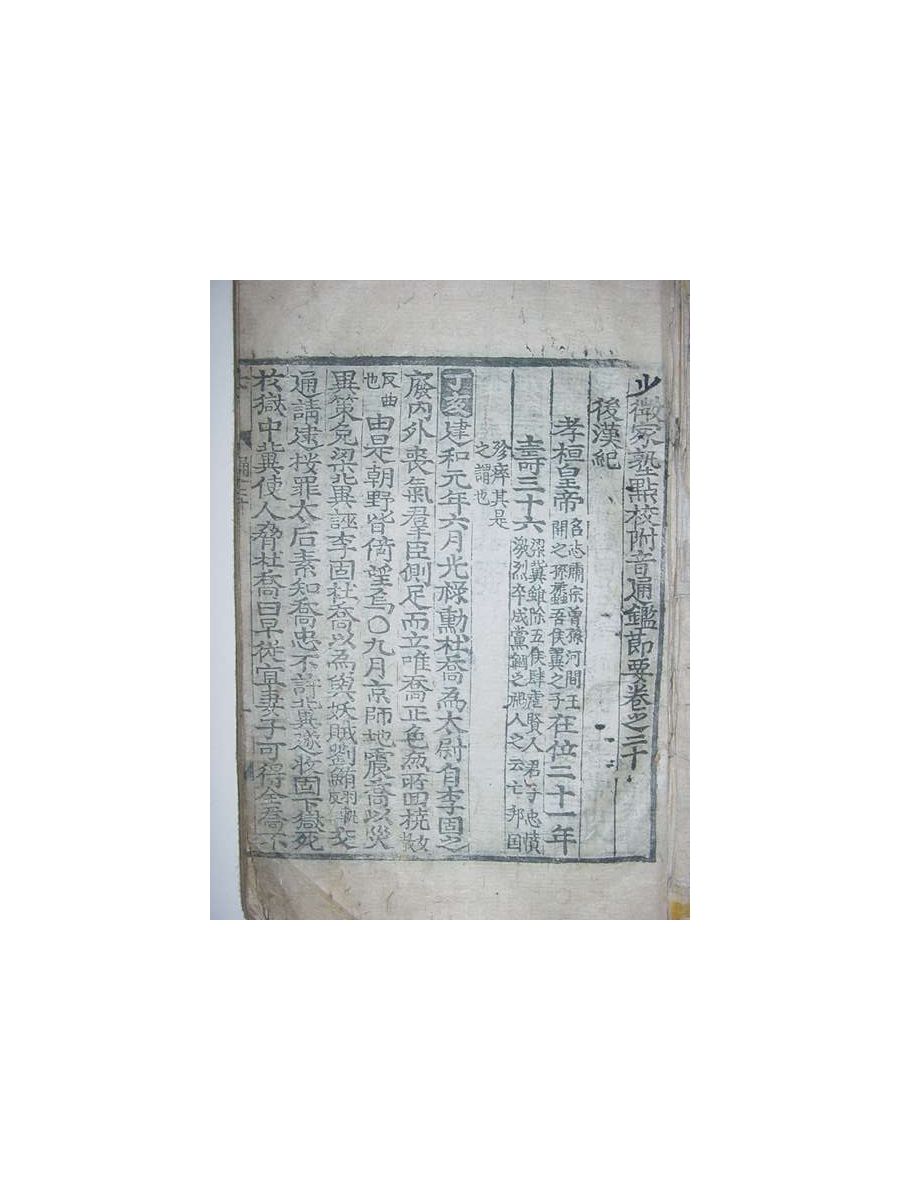 少微家塾點校附音通鑑節要卷之二十
後漢紀
孝桓皇帝 名志肅宗曾孫河間王開之孫蠡吾侯翼之子 在位二十一年
壽三十六 梁冀雖除五侯肆虐賢人君子忠憤激烈卒成黨錮之禍人之云亡邦國
殄瘁其是之謂也
丁亥建和元年六月光祿勳杜喬為太尉自李固之
廢內外喪氣羣臣側足而立唯喬正色無所回撓
反曲也 由是朝野皆倚望焉〇九月京師地震喬以災
異策免梁冀誣李固杜喬以為與妖賊劉鮪 交
通請逮按罪太后素知喬忠不許冀遂收固下獄死
於獄中冀使人脅杜喬曰早從宜妻子可得全喬不